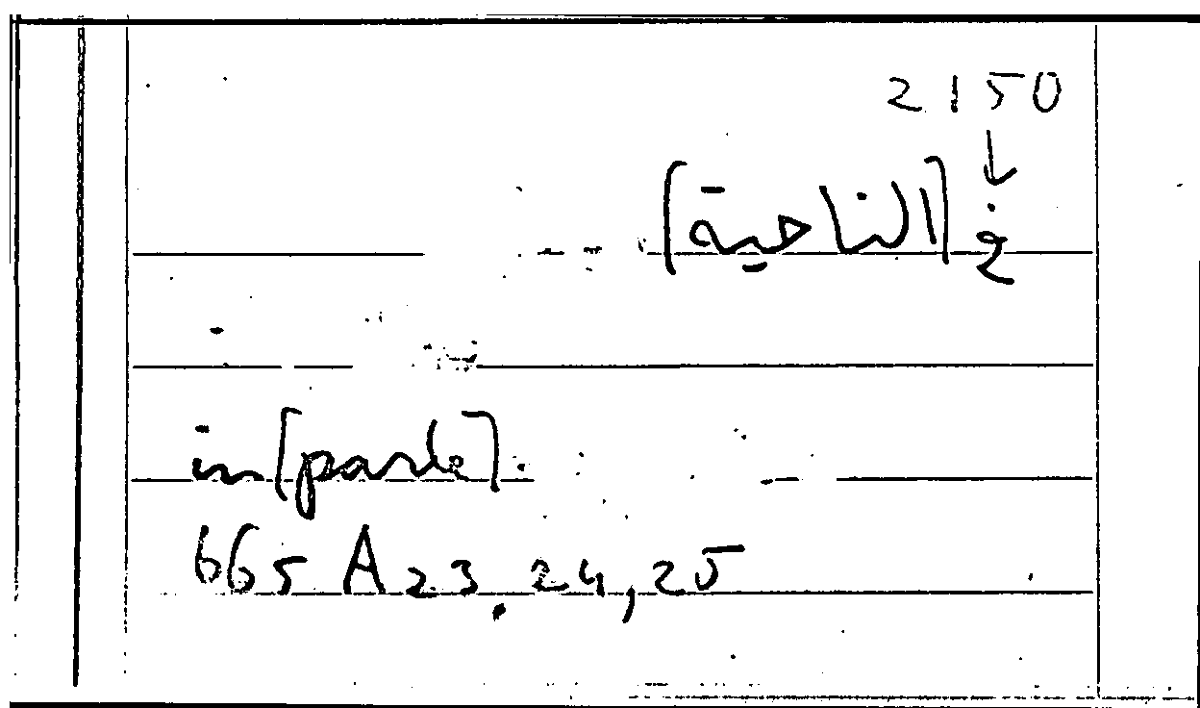 2150
↓
في [الناحية]
in [parte].
665 A 23, 24, 25